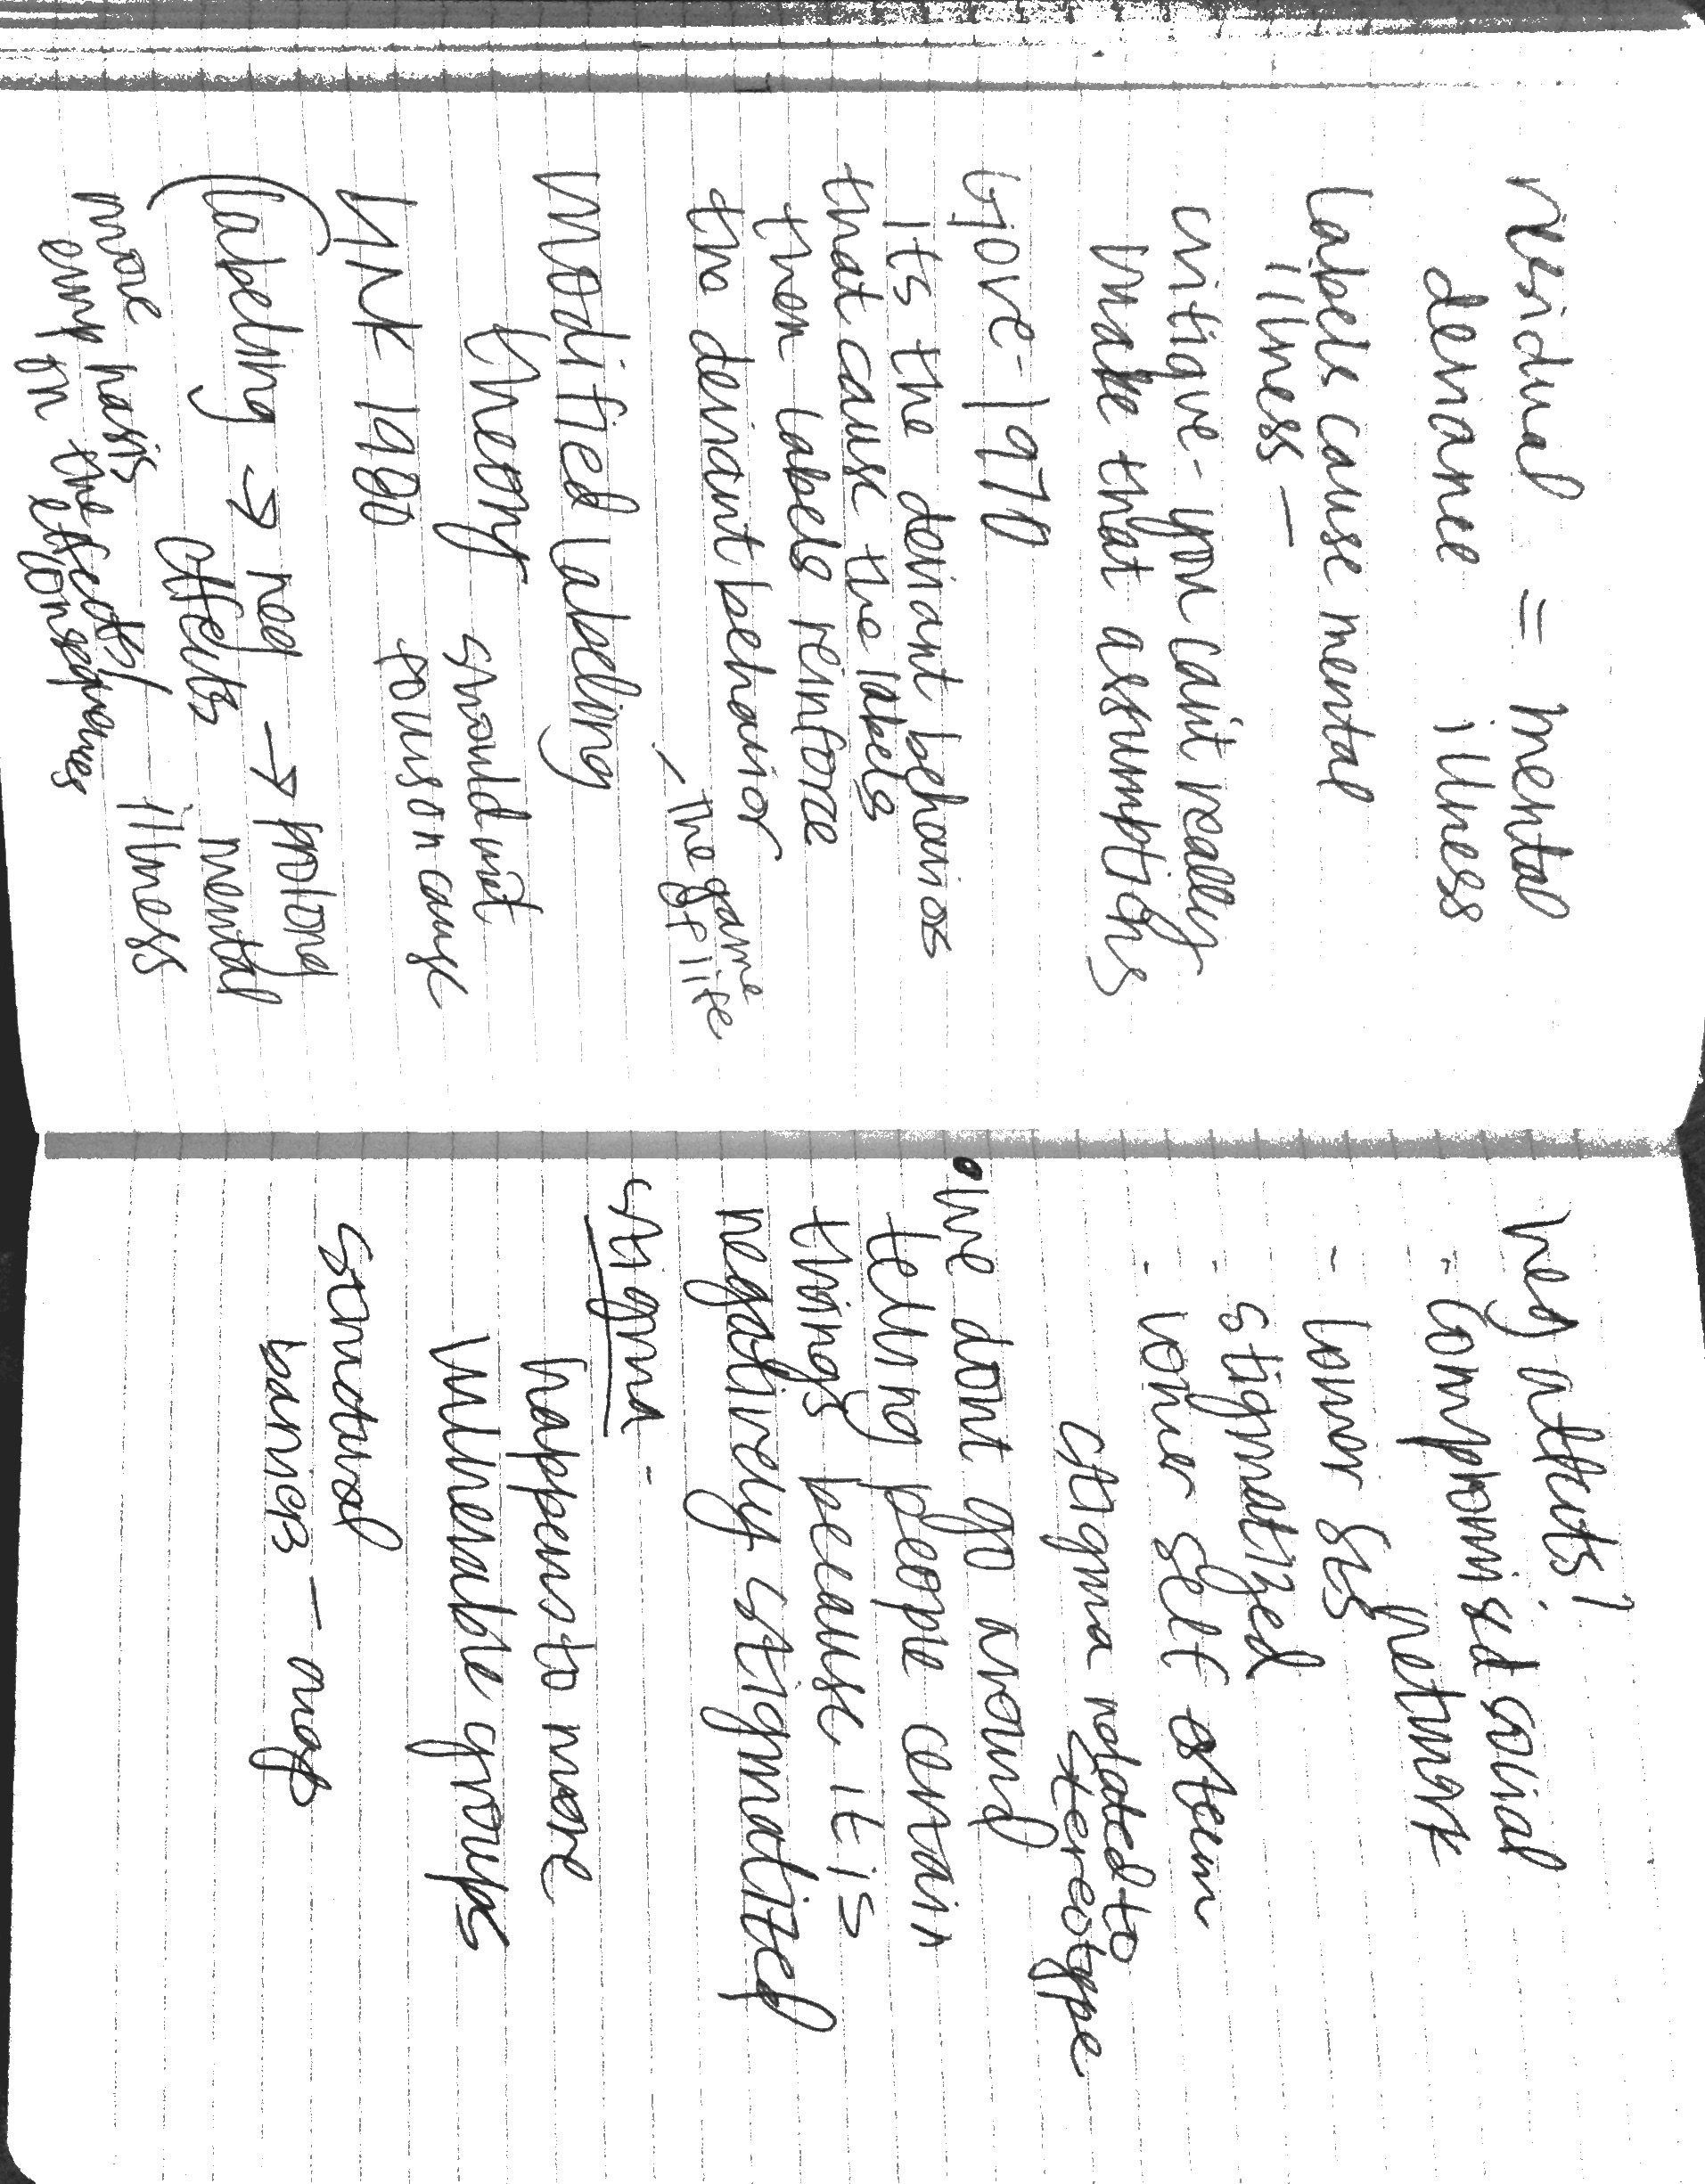 residual = mental
deviance illness
Labels cause mental
illness -
critique - you can't really
make that assumptions
Gove - 1970
Its the deviant behaviors
that cause the labels
then labels reinforce
the deviant behavior
- The game
of life
Modified Labeling
theory
should not
focus on cause
LINK 1980
(labeling → neg → prolong
effects mental
illness
more emphasis
on the effects/
consequences
neg affects?
- compromised social
network
- lower SES
- stigmatized
- lower self esteem
stigma related to
stereotype
• We dont go around
telling people certain
things because it is
negatively stigmatized
stigma -
happens to more
vulnerable groups
structural
barriers -